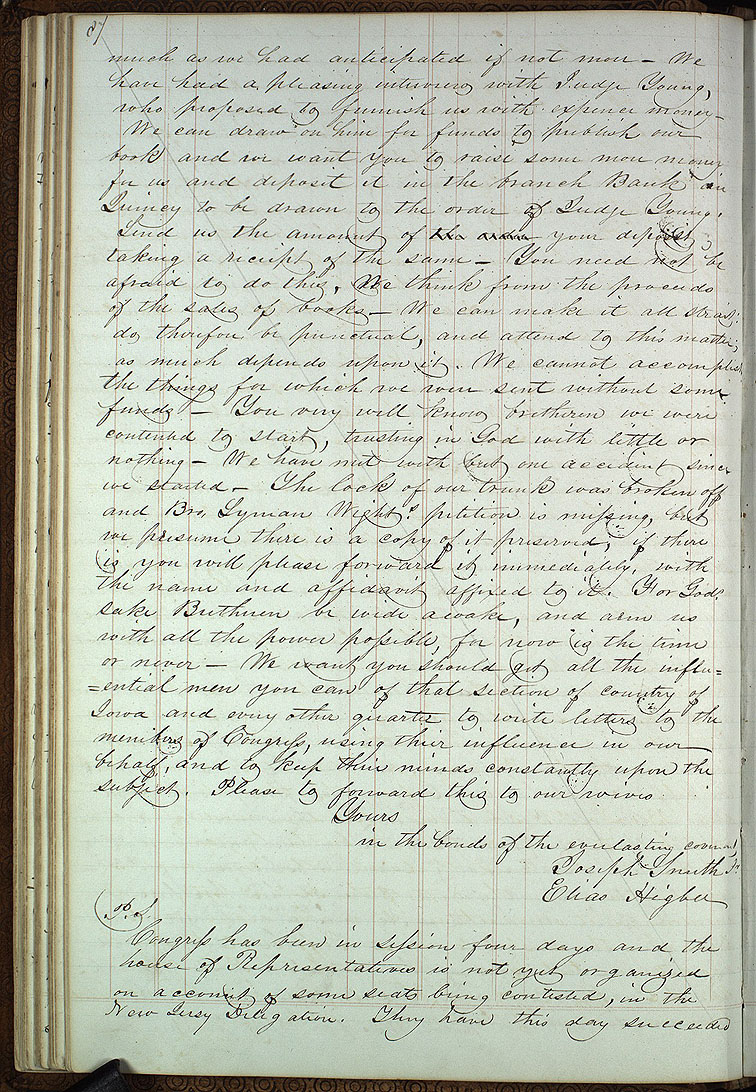 87
much as we had anticipated if not more — We
have had a pleasing interview with Judge Young,
who proposed to furnish us with expence money —
We can draw on him for funds to publish our
book and we want you to raise some more money
for us and deposit it in the branch Bank in
Quincy to be drawn to the order of Judge Young.
Send us the amount of the order your deposits,
taking a receipt of the same — You need not be
afraid to do this, We think from the proceeds
of the sales of books — We can make it all strait;
do therefore be punctual, and attend to this matter;
as much depends upon it. We cannot accomplish
the things for which we were sent without some
funds — You very well know bretheren we were
contented to start, trusting in God with little or
nothing — We have met with but one accident since
we started — The lock of our trunk was broken off
and Bro. Lyman Wight's petition is missing, but
we presume there is a copy of it preserved, if there
is, you will please forward it immediately, with
the name and affidavit affixed to it. For God's
sake Brethren be wide awake, and arm us
with all the power possible, for now is the time
or never — We want you should get all the influ=
=ential men you can of that section of country of
Iowa and every other quarter to write letters to the
members of Congress, using their influence in our
behalf, and to keep their minds constantly upon the
subject. Please to forward this to our wives
Yours
in the bonds of the everlasting covenant
Joseph Smith Jr
Elias Higbee
P.S.
Congress has been in session four days and the
house of Representatives is not yet organized
on account of some seats being contested, in the
New Jersy Deligation. They have this day succeeded